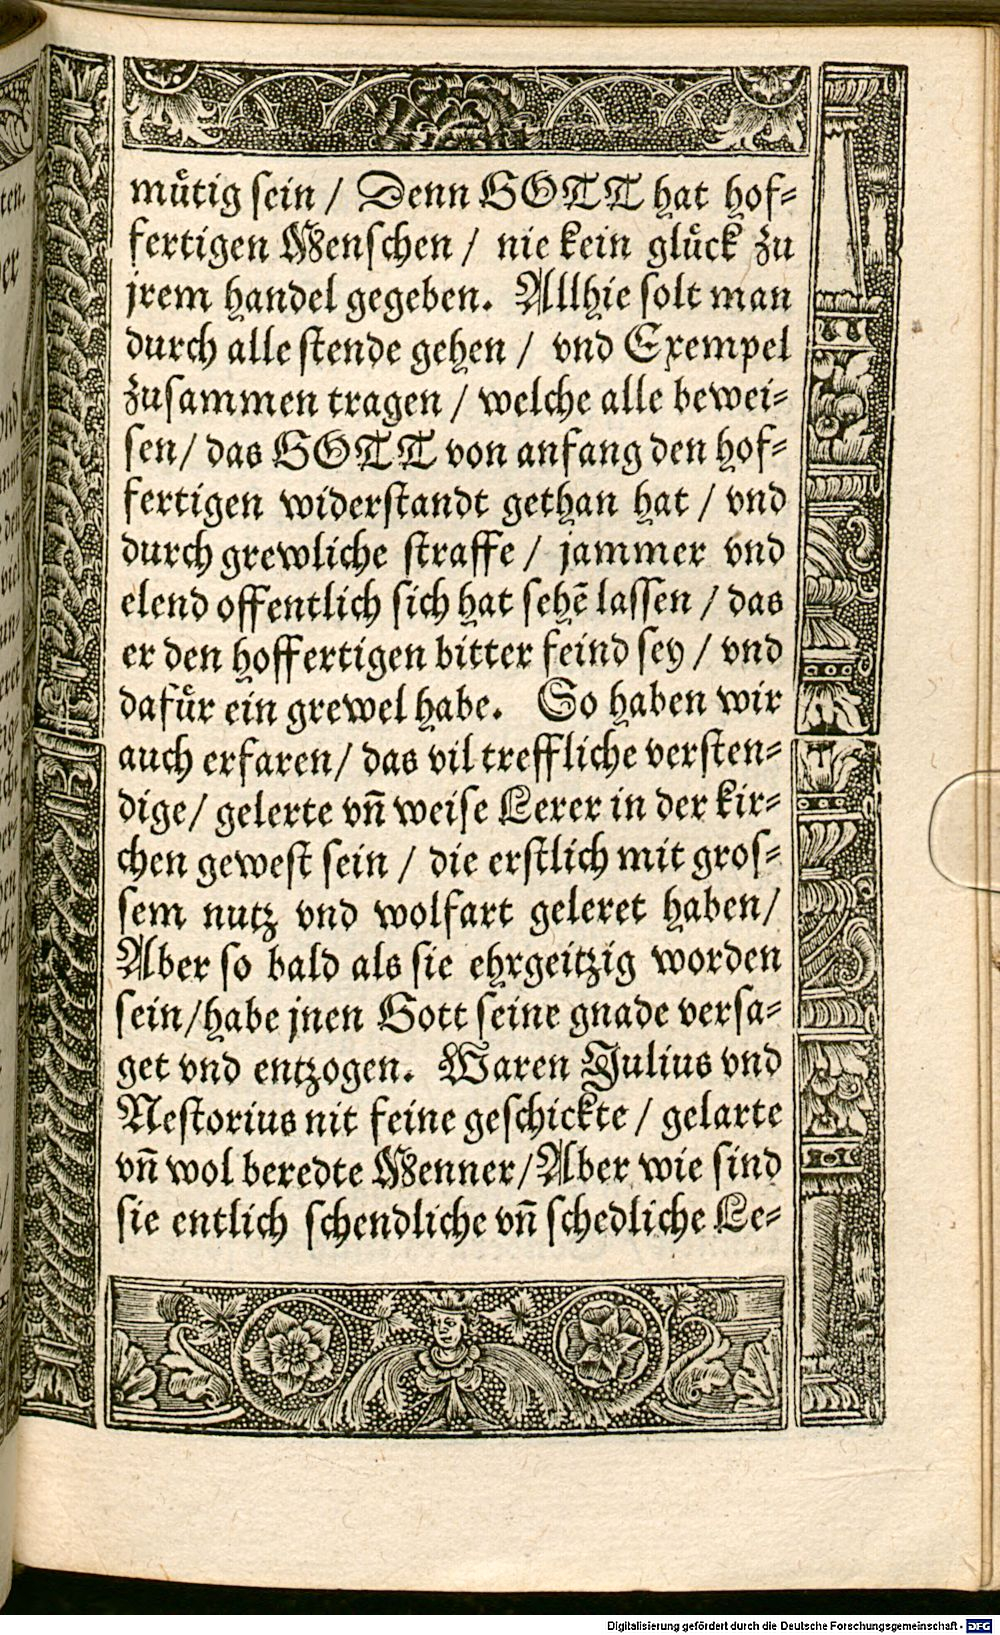 mütig sein / Denn GOTT hat hof-
fertigen Menschen / nie kein glück zu
jrem handel gegeben. Allhie solt man
durch alle stende gehen / vnd Exempel
zusammen tragen / welche alle bewei-
sen / das GOTT von anfang den hof-
fertigen widerstandt gethan hat / vnd
durch grewliche straffe / jammer vnd
elend offentlich sich hat sehē lassen / das
er den hoffertigen bitter feind sey / vnd
dafür ein grewel habe. So haben wir
auch erfaren / das vil treffliche versten-
dige / gelerte vn̄ weise Lerer in der kir-
chen gewest sein / die erstlich mit gros-
sem nutz vnd wolfart geleret haben /
Aber so bald als sie ehrgeitzig worden
sein / habe jnen Gott seine gnade versa-
get vnd entzogen. Waren Julius vnd
Nestorius nit feine geschickte / gelarte
vn̄ wol beredte Menner / Aber wie sind
sie entlich schendliche vn̄ schedliche Le-
Digitalisierung gefördert durch die Deutsche Forschungsgemeinschaft - DFG